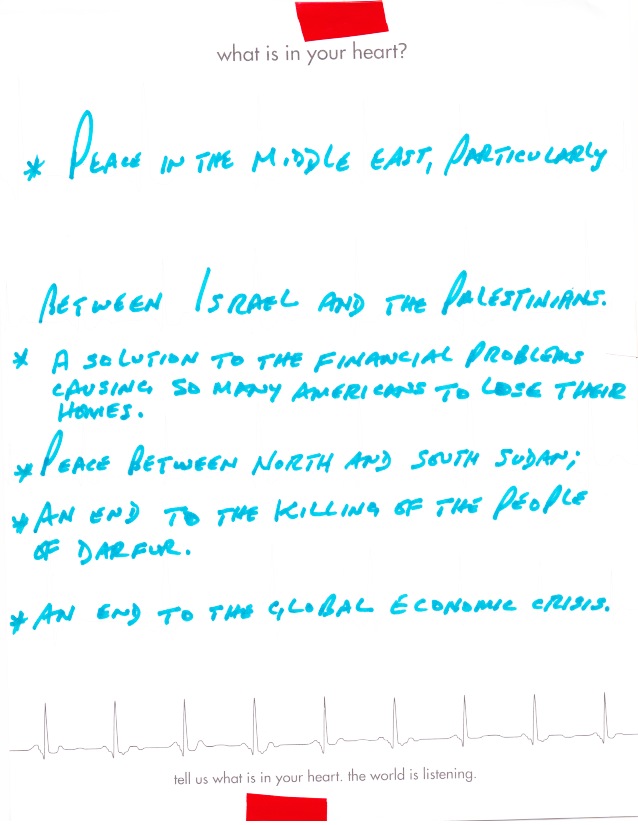 what is in your heart?
* PEACE IN THE MIDDLE EAST, PARTICULARLY
BETWEEN ISRAEL AND THE PALESTINIANS.
* A SOLUTION TO THE FINANCIAL PROBLEMS
CAUSING SO MANY AMERICANS TO LOSE THEIR
HOMES.
* PEACE BETWEEN NORTH AND SOUTH SUDAN;
* AN END TO THE KILLING OF THE PEOPLE
OF DARFUR.
* AN END TO THE GLOBAL ECONOMIC CRISIS.
tell us what is in your heart. the world is listening.